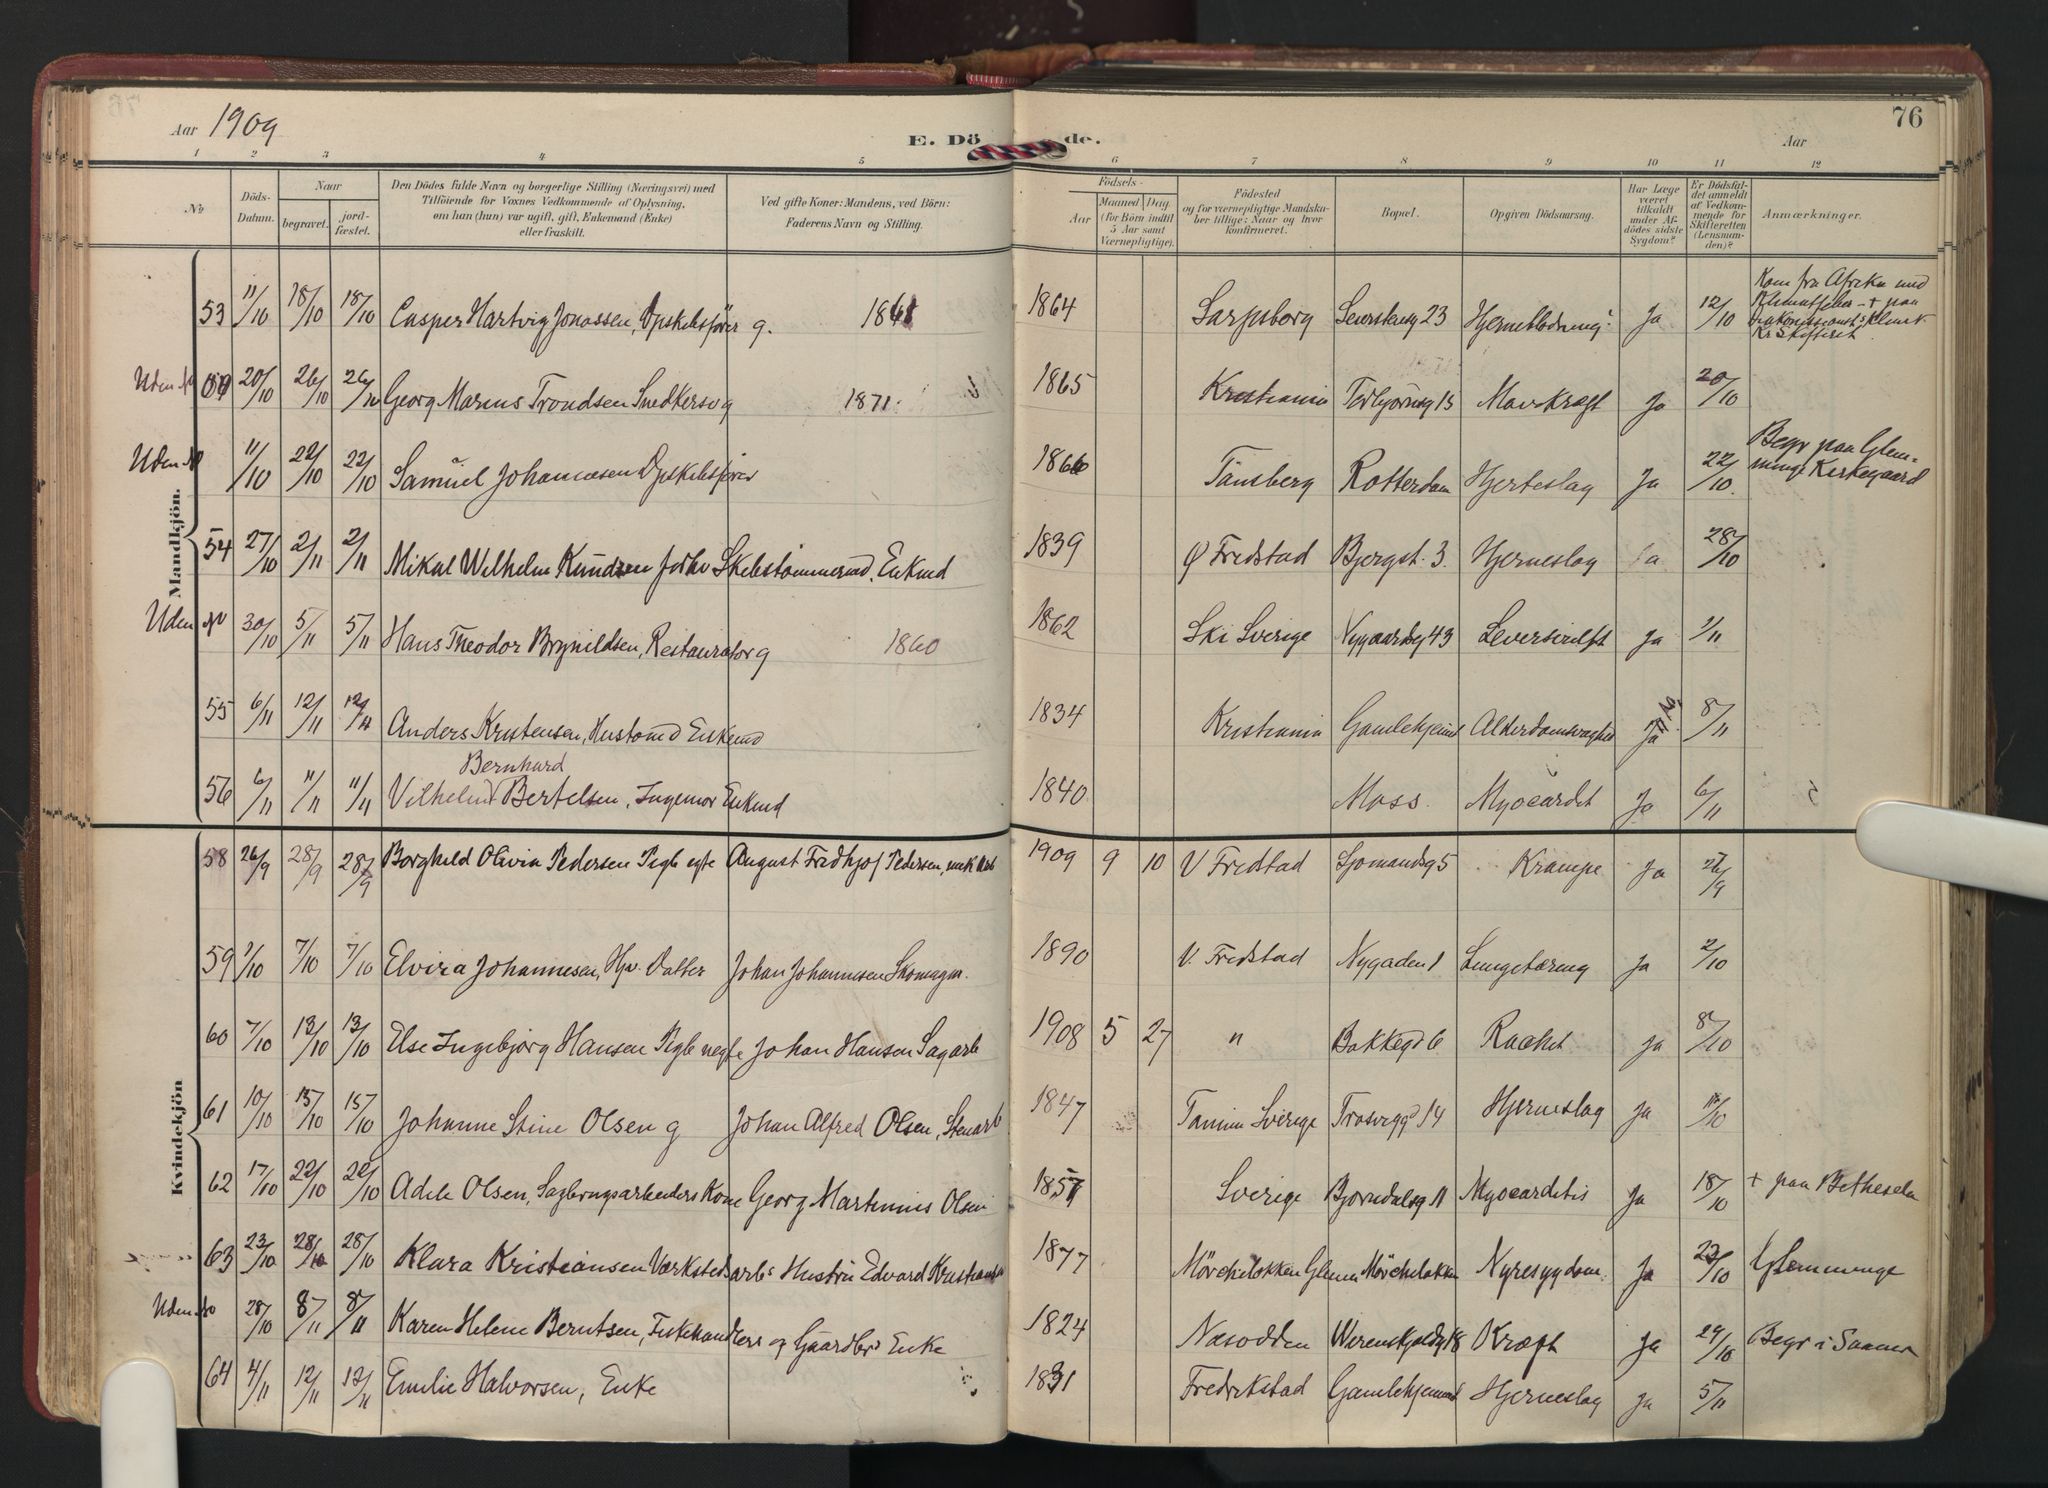 Aar 1909
E. Dö de.
76
Aar
1 2 3 4 5 6 7 8 9 10 11 12
№
Döds-Datum.
Naar
begravet.
jord-fæstet.
Den Dödes fulde Navn og borgerlige Stilling (Næringsvei) med
Tilföiende for Voxnes Vedkommende af Oplysning,
om han (hun) var ugift, gift, Enkemand (Enke)
eller fraskilt.
Ved gifte Koner: Mandens, ved Börn:
Faderens Navn og Stilling.
Födsels-
Aar
Maaned Dag
(for Börn indtil
5 Aar samt
Værnepligtige).
Födested
og for værnepligtige Mandska-
ber tillige: Naar og hvor
konfirmeret.
Bopæl.
Opgiven Dödsaarsag.
Har Læge
været
tilkaldt
under Af-
dödes sidste
Sygdom?
Er Dödsfal-
det anmeldt
af Vedkom-
mende for
Skifteretten
(Lensman-
den)?
Anmærkninger.
Mandkjön.
53 11/10 18/10 18/10 Casper Hartvig Jonassen, Dpskibsförer g. 1861 1864 Sarpsborg 23 Ja 12/10 Kom fra Afrika med
+ paa
Uden № 20/10 26/10 26/10 Georg Marius Trondsen Snedkersv g 1871 1865 Kristiania Torbjørnsg 15 Mavekræft Ja 20/10
Uden № 11/10 22/10 22/10 Samuel Johannesen Dpskibsfører 1866 Tønsberg Rotterdam Hjerteslag Ja 22/10. Begr paa Glem-
minge Kirkegaard
54 27/10 2/11 2/11 Mikal Wilhelm Knudsen Skibstømmermd. Enkmd 1839 Ø Fredstad Bjergst. 3. Hjerneslag Ja 28/10
Uden № 30/10 5/11 5/11 Hans Theodor Brynildsen, Restauratør g 1860 1862 Ski Sverige Nygaardsg 43 Ja 1/11
55 6/11 12/11 12/11 Anders Kristensen, Hustomd Enkemd 1834 Kristiania Gamlehjemmet Alderdomssvaghed Ja 8/11
Bernhard
56 6/11 11/11 11/11 Vilhelm Bertelsen, Ingeniør Enkmd 1840 Moss. Myocardit Ja 6/11
Kvindekjön
58 26/9 28/9 28/9 Borghild Olivia Pedersen Pigb egte August Fredhjof Pedersen, 1909 9 10 V Fredstad Sjømandsg 5 Krampe Ja 26/9
59 1/10 7/10 7/10 Elvira Johannesen, Hjv. Datter Johan Johannesen Skomagm. 1890 V. Fredstad Nygaden 1 Lungetæring Ja 2/10
60 7/10 13/10 13/10 Else Ingebjørg Hansen Pigb uegte Johan Hansen Sagarb 1908 5 27 " Bakkegd 6 Rachit Ja 8/10
61 10/10 15/10 15/10 Johanne Stine Olsen g Johan Alfred Olsen, Stenarb 1847 Tanum Sverige Trosviggd 14 Hjerneslag Ja 11/10
62 17/10 22/10 22/10 Adele Olsen, Sagbrugsarbeiders Kone Georg Martinius Olsen 1857 Sverige Bjørndalsg 11 Myocarditis Ja 18/10 + paa Bethesda
63 23/10 28/10 28/10 Klara Kristiansen Værkstedsarbs Hustru Edvard Kristiansen 1877 Mörchelökken Glemm Mörchelökken Nyresygdom. Ja 23/10 Glemminge
Uden № 28/10 8/11 8/11 Karen Helene Berntsen, Fiskehandlers og Gaardbrs Enke 1824 Næsodden Werenskjoldsg 18 Kræft Ja 29/10 Begr i
64 4/11 12/11 12/11 Emilie Halvorsen, Enke 1831 Fredrikstad Gamlehjemmet Hjerneslag Ja 5/11